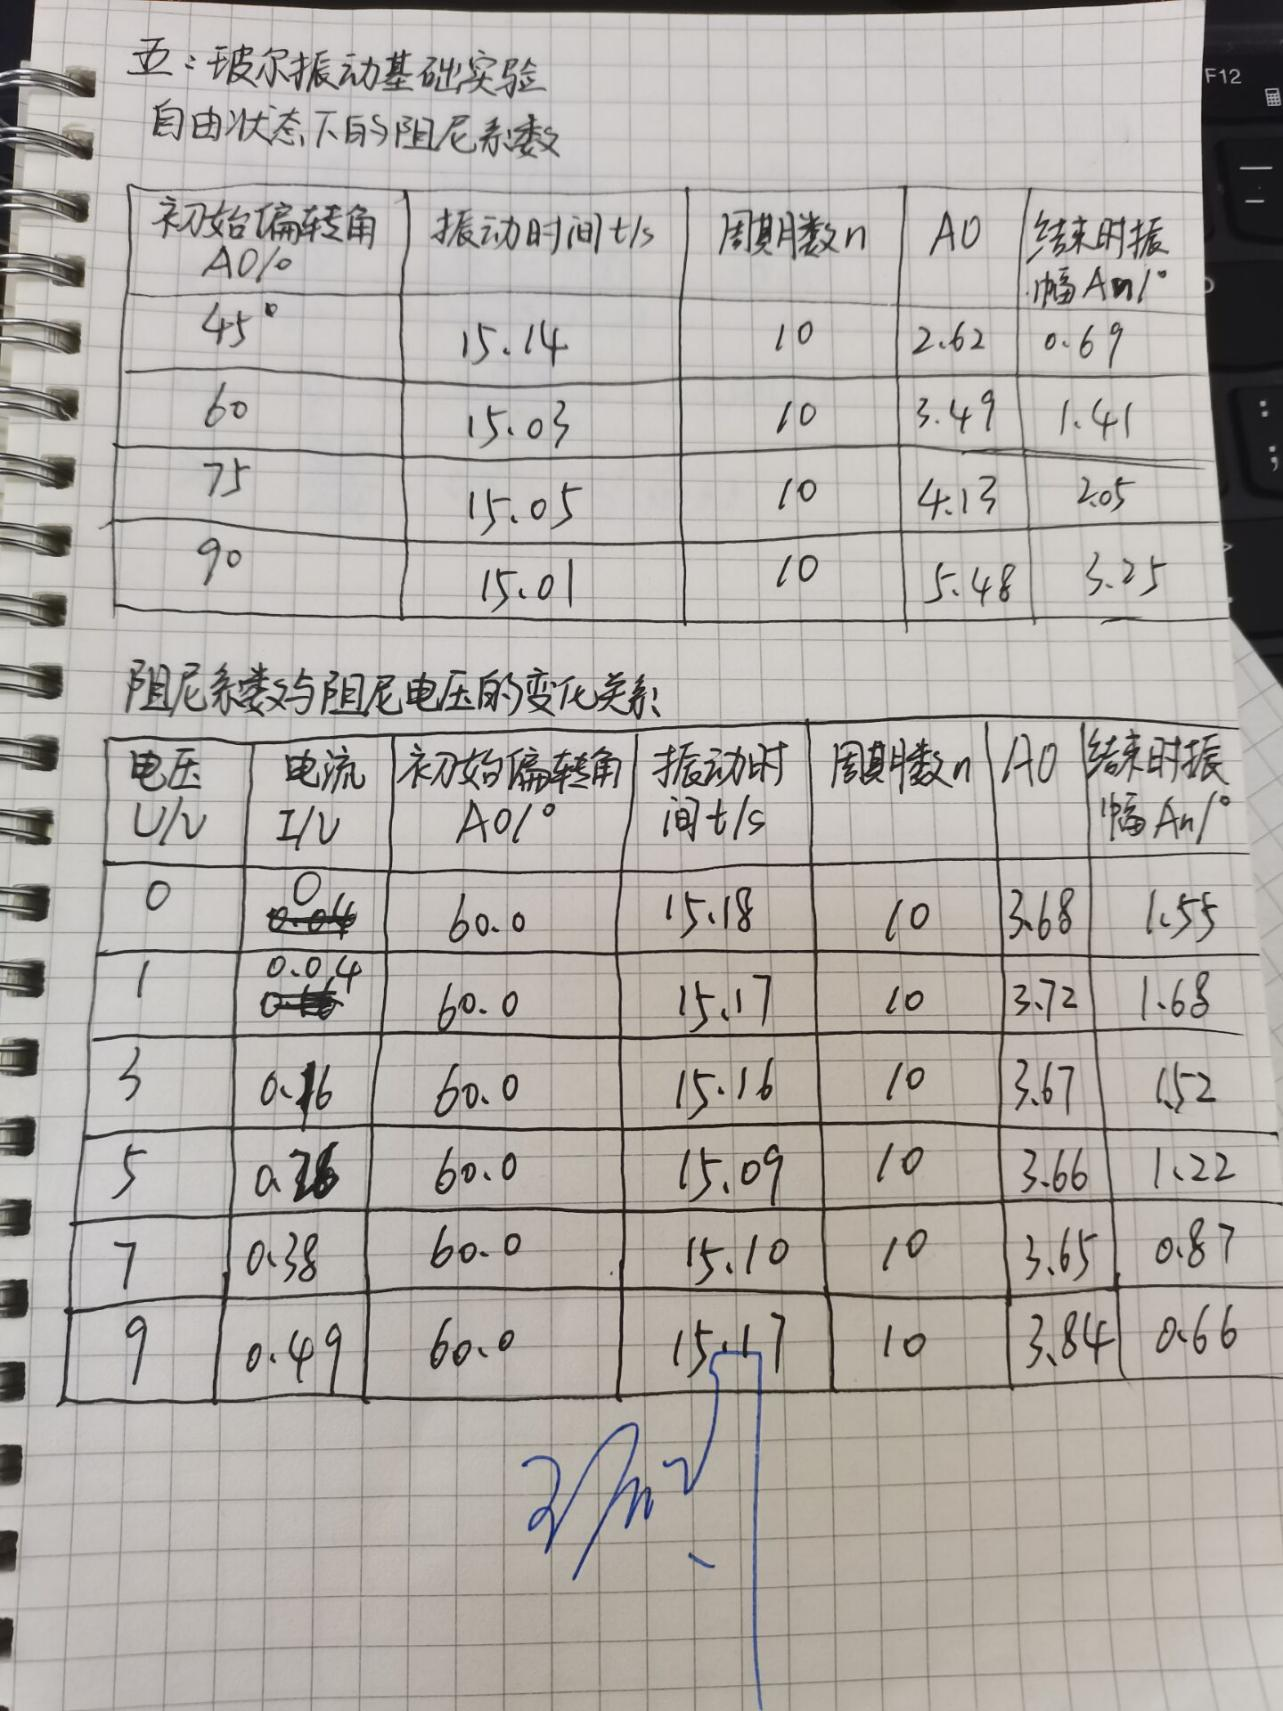 五:玻尔振动基础实验
自由状态下的阻尼系数
初始偏转角 A0/° 振动时间t/s 周期数n A0 结束时振幅An/°
45° 15.14 10 2.62 0.69
60 15.03 10 3.49 1.41
75 15.05 10 4.13 2.05
90 15.01 10 5.48 3.25
阻尼系数与阻尼电压的变化关系
电压 U/V 电流 I/V 初始偏转角 A0/° 振动时间t/s 周期数n A0 结束时振幅An/°
0 0 60.0 15.18 10 3.68 1.55
1 0.04 60.0 15.17 10 3.72 1.68
3 0.16 60.0 15.16 10 3.67 1.52
5 0.26 60.0 15.09 10 3.66 1.22
7 0.38 60.0 15.10 10 3.65 0.87
9 0.49 60.0 15.17 10 3.84 0.66
F12